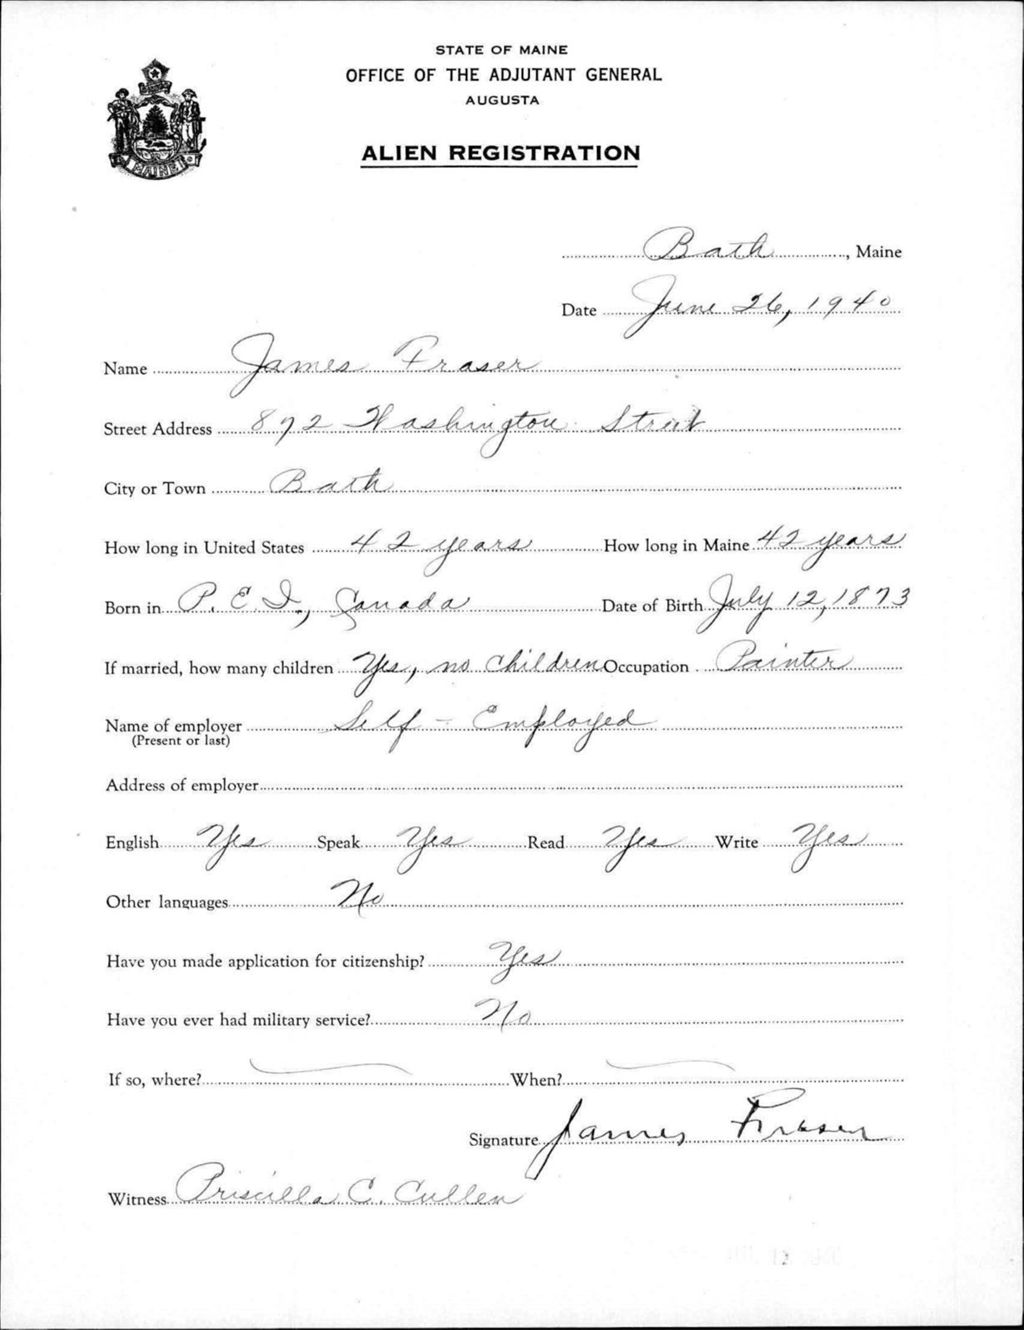 STATE OF MAINE
OFFICE OF THE ADJUTANT GENERAL
AUGUSTA
ALIEN REGISTRATION
MAINE
Bath, Maine
Date June 26, 1940
Name James Fraser
Street Address 872 Washington Street
City or Town Bath
How long in United States 42 years How long in Maine 42 years
Born in P. E. I., Canada Date of Birth July 12, 1873
If married, how many children Yes, no children Occupation Painter
Name of employer Self-Employed
(Present or last)
Address of employer
English Yes Speak Yes Read Yes Write Yes
Other languages No
Have you made application for citizenship? Yes
Have you ever had military service? No
If so, where? When?
Signature James Fraser
Witness Priscilla C. Cullen